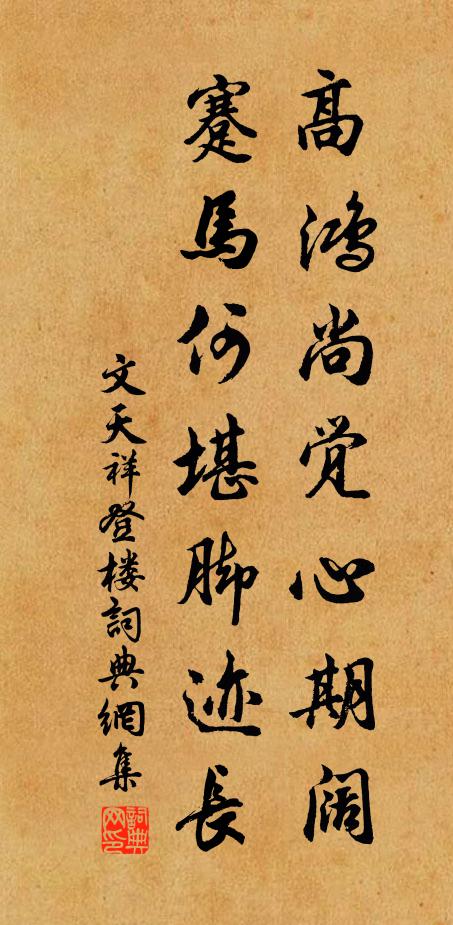 高鸿尚觉心期阔
蹇馬何堪脚迹長
文天祥登楼詞典網集
詞典网印